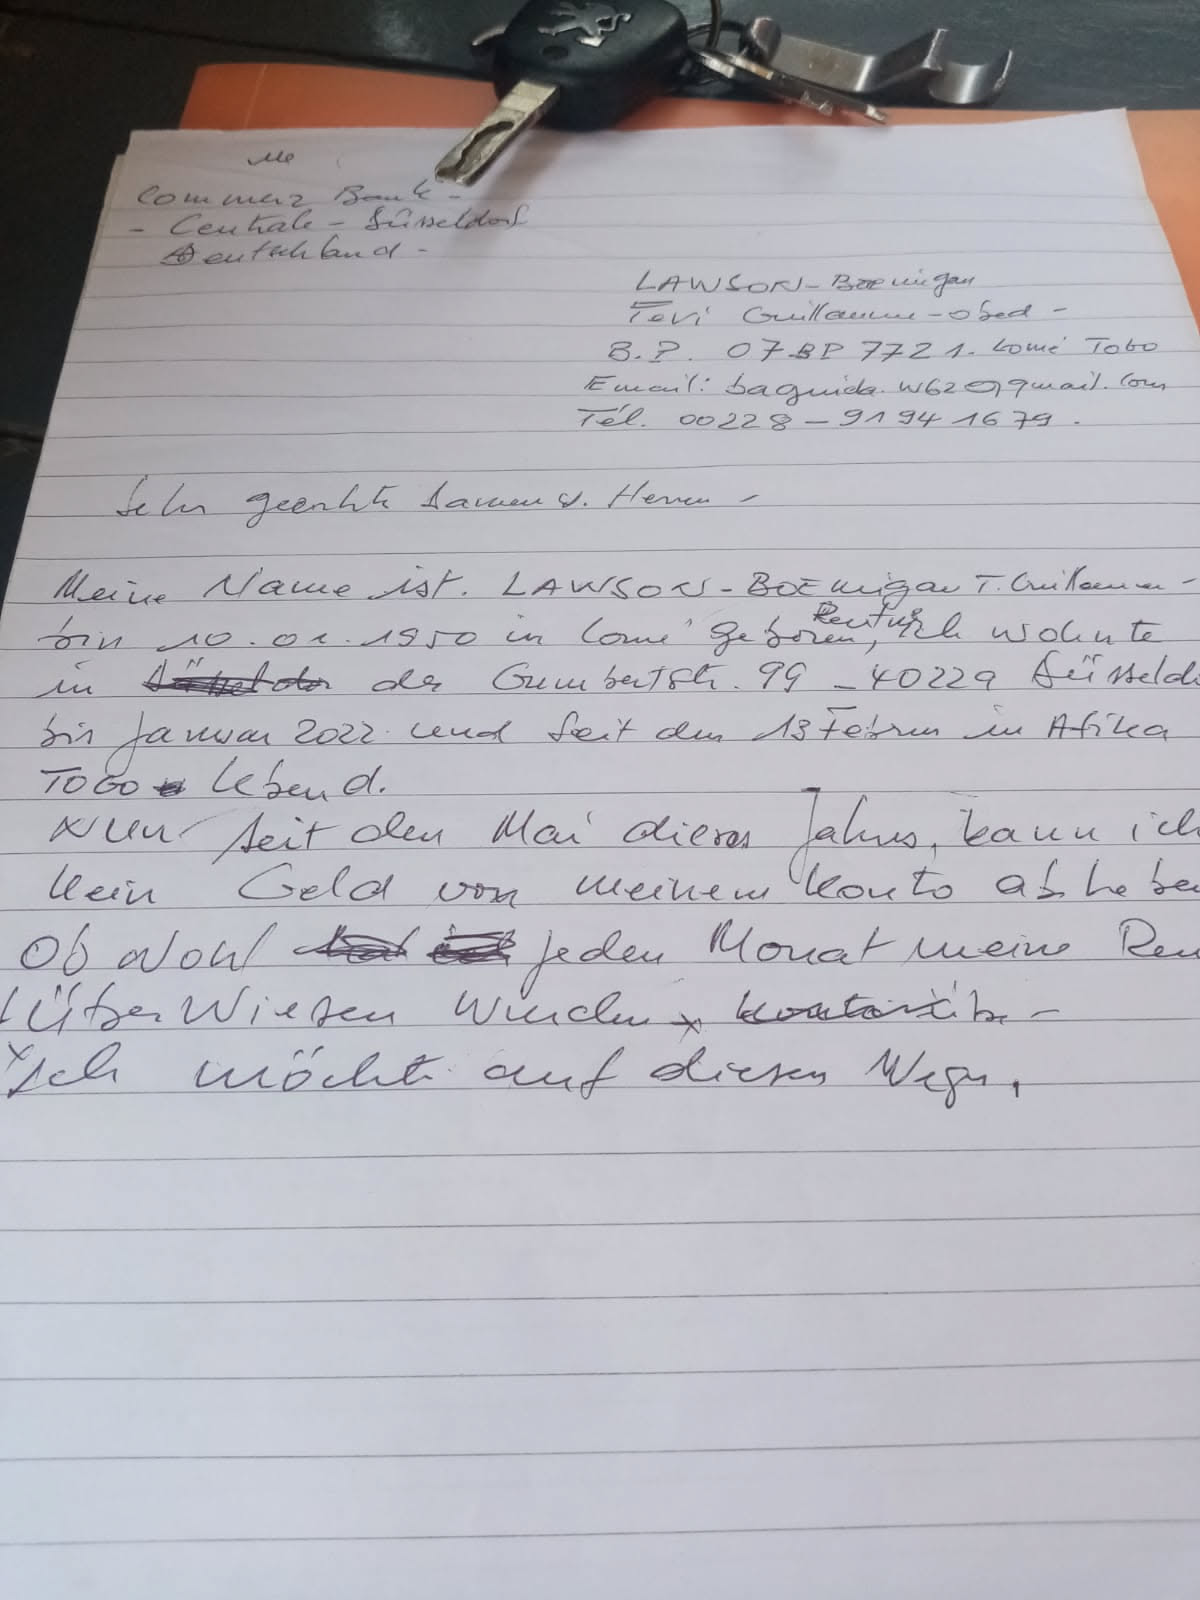 Commerz Bank -
- Centrale - Düsseldorf
Deutschland -
LAWSON-BOEvigan
Tevi Guillaume-obed -
B.P. 07 BP 7721. Lomé TOGO
Tél. 00228-91941679.
Sehr geerhte Damen u. Herren -
Meine Name ist. LAWSON-BOEvigan T. Guillaume -
bin 10.01.1950 in Lomé geboren, Rentner, Ich wohnte
in der Gumbertstr. 99 - 40229 Düsseld
bis Januar 2022. und seit den 13 Februr in Afika
TOGO lebend.
NUN seit den Mai dieses Jahrs, kann ich
kein Geld von meinem Konto abhebe
Obwohl jeden Monat meine Ren
t überwiesen wurden x
x Ich möchte auf diesen Wegn,